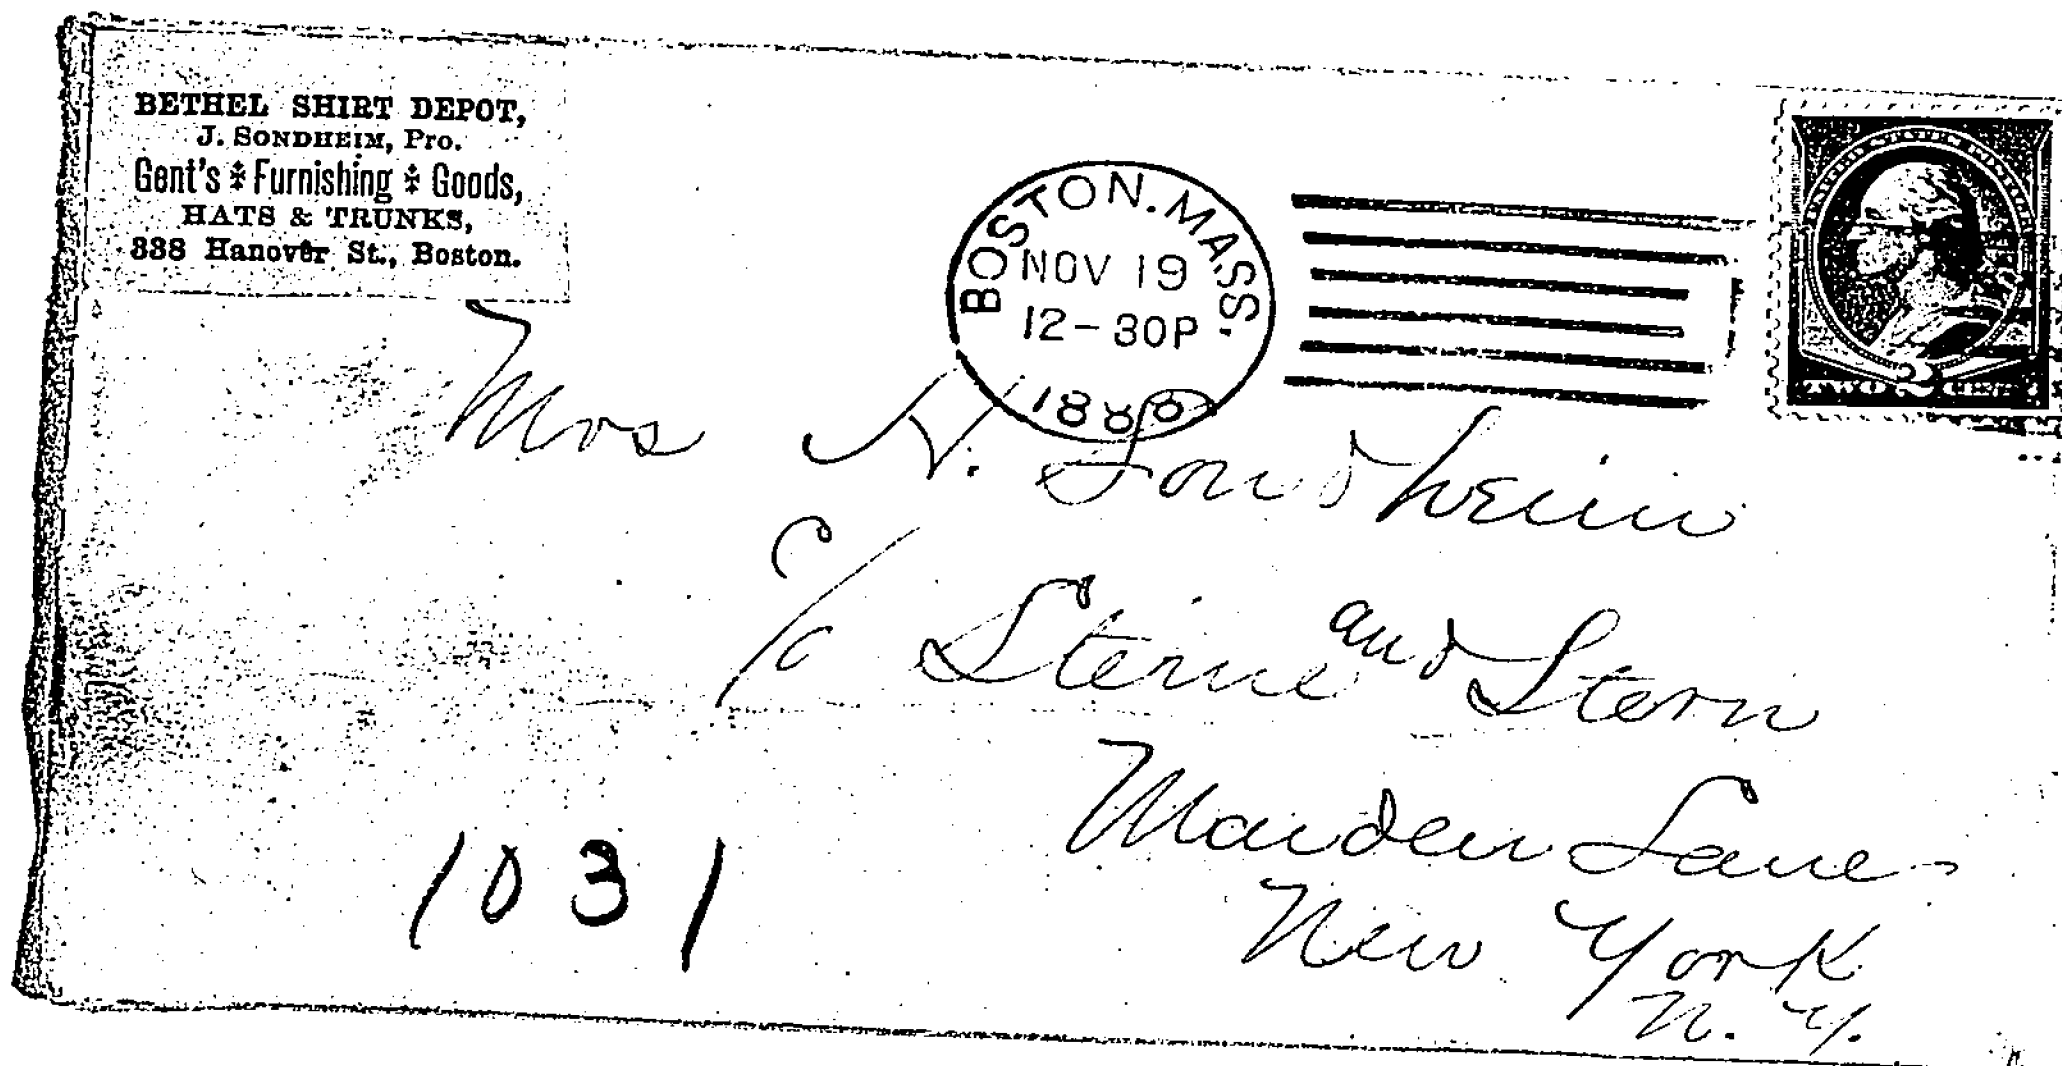 BETHEL SHIRT DEPOT,
J. SONDHEIM, Pro.
Gent's Furnishing Goods,
HATS & TRUNKS,
338 Hanover St., Boston.
BOSTON. MASS.
NOV 19
12-30P
1888
TWO 2 CENTS
Mrs N. Sondheim
c/o Sterne and Stern
Maiden Lane
New York
N. Y.
1031